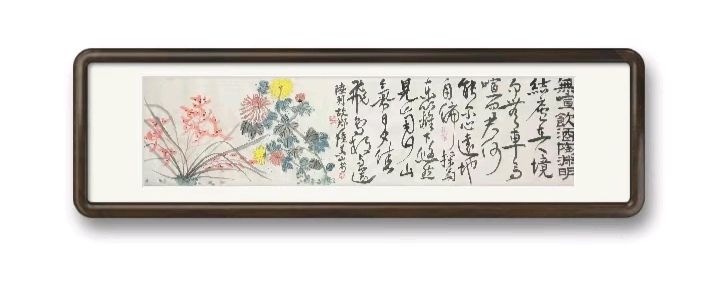 無喧飲酒陶淵明
結廬在人境
而無車馬
喧問君何
能尔心遠地
自偏採菊
東籬下悠然
見南山山
氣日夕佳
飛鳥相與還